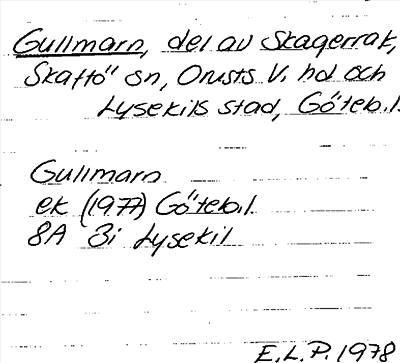 Gullmarn, del av Skagerrak,
Skaftö sn, Orusts V. hd och
Lysekils stad, Göteb.l.
Gullmarn
ek (1977) Göteb.l.
8A 3i Lysekil
E.L.P. 1978